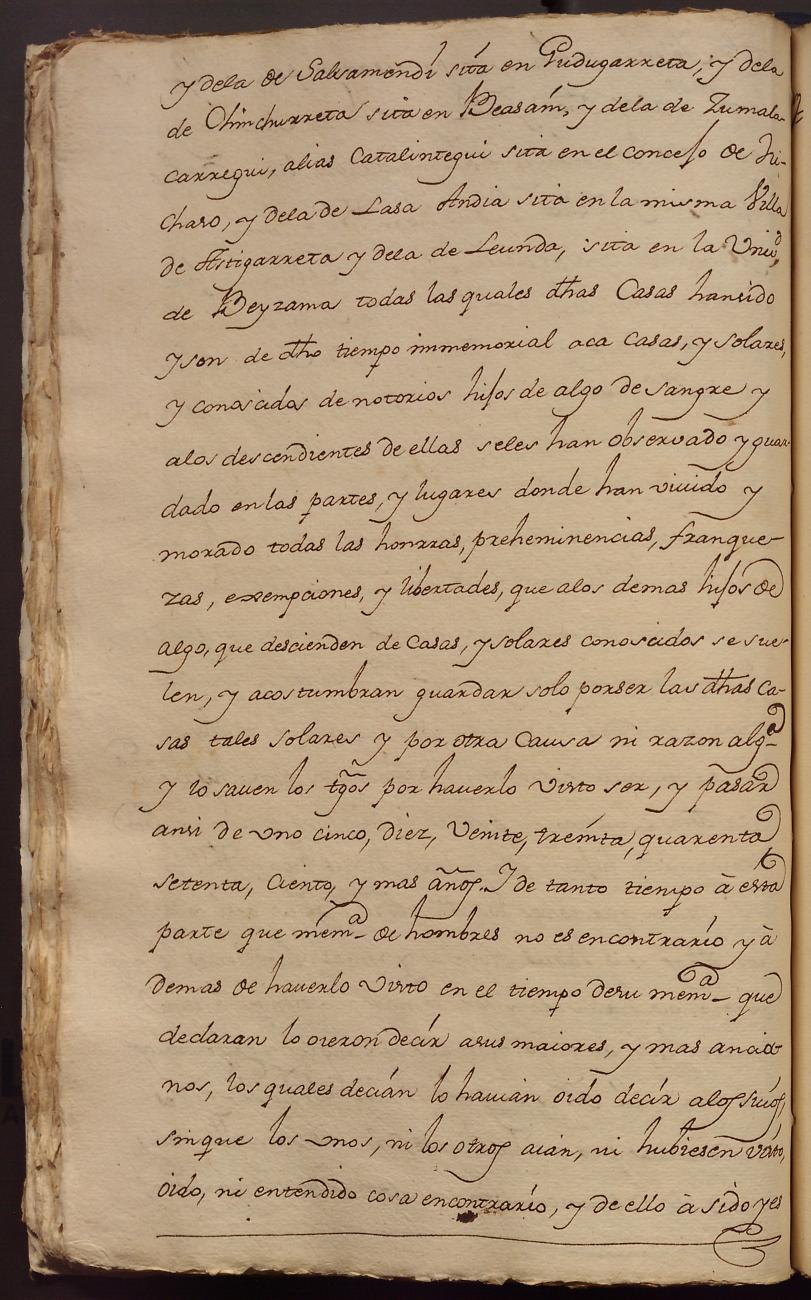 y dela de Salsamendi sita en Gudugarreta, y dela
de Chinchurreta sita en Beasain, y dela de Zumala-
carregui, alias Catalintegui sita en el concejo de Ji-
charo, y dela de Lasa Andia sita en la misma Villa
de Astigarreta y dela de Leunda, sita en la Univd
de Beyzama todas las quales dhas Casas han sido
y son de dho tiempo immemorial aca casas, y solares,
y conoscidos de notorios hijos de algo de sangre y
alos descendientes de ellas seles han observado y guar-
dado en las partes, y lugares donde han vivido y
morado todas las honrras, preheminencias, franque-
zas, exempciones, y libertades, que alos demas hijos de
algo, que descienden de casas, y solares conoscidos se sue-
len, y acostumbran guardar solo por ser las dhas Ca-
sas tales solares y por otra Causa ni razon alga
y lo saven los tgos por haverlo visto ser, y pasar
ansi de uno cinco, diez, Veinte, treinta, quarenta
setenta, Ciento, y mas años. Y de tanto tiempo à esta
parte que mema de hombres no es encontrario y à
demas de haverlo visto en el tiempo desu mema que
declaran lo oieron decir asus maiores, y mas ancia-
nos, los quales decian lo havian oido decir alos suios,
sinque los unos, ni los otros aian, ni hubiesen visto,
oido, ni entendido cosa encontrario, y de ello à sido y es